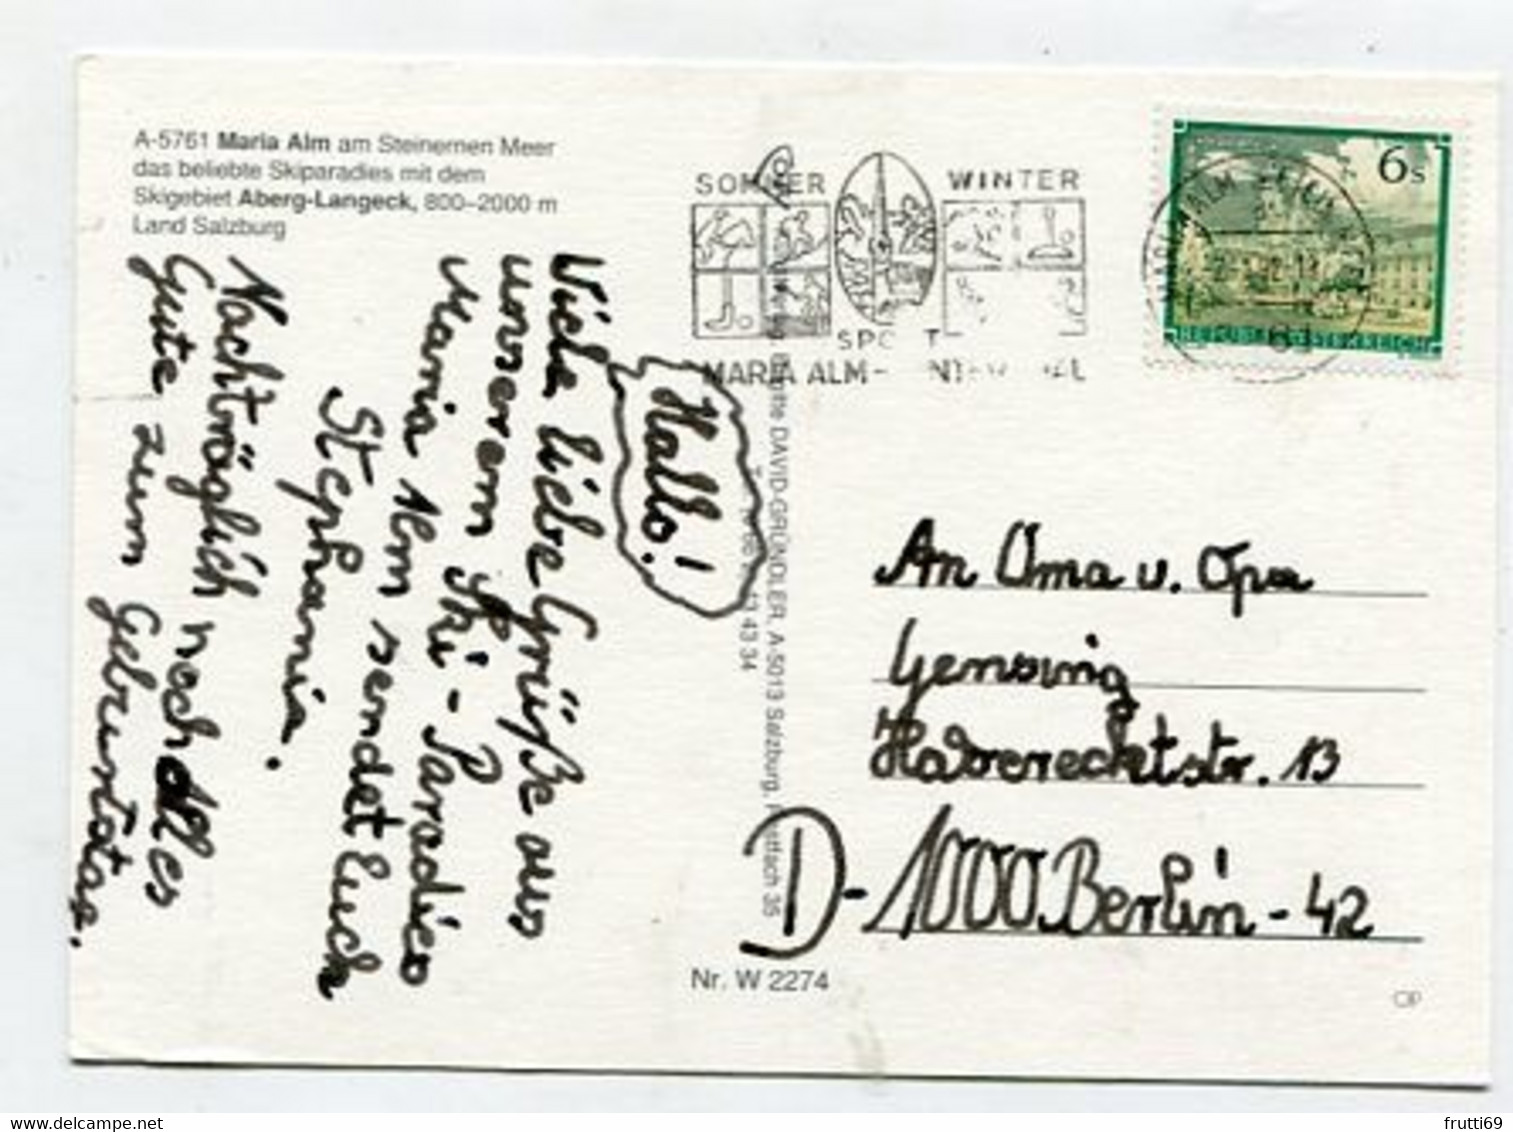 A-5761 Maria Alm am Steinernen Meer
das beliebte Skiparadies mit dem
Skigebiet Aberg-Langeck, 800–2000 m
Land Salzburg
SOMMER
WINTER
SPORT
MARIA ALM-
6s
REPUBLIK ÖSTERREICH
Hallo!
Viele liebe Grüße aus
unserem Ski-Paradies
Maria Alm sendet Euch
Stephania.
Nachträglich noch alles
Gute zum Geburtstag.
DAVID-GRÜNDLER, A-5013 Salzburg, Postfach 35
43 34
An Oma u. Opa
Gensing
Haverechtstr. 13
D-1000 Berlin-42
Nr. W 2274
frutti69